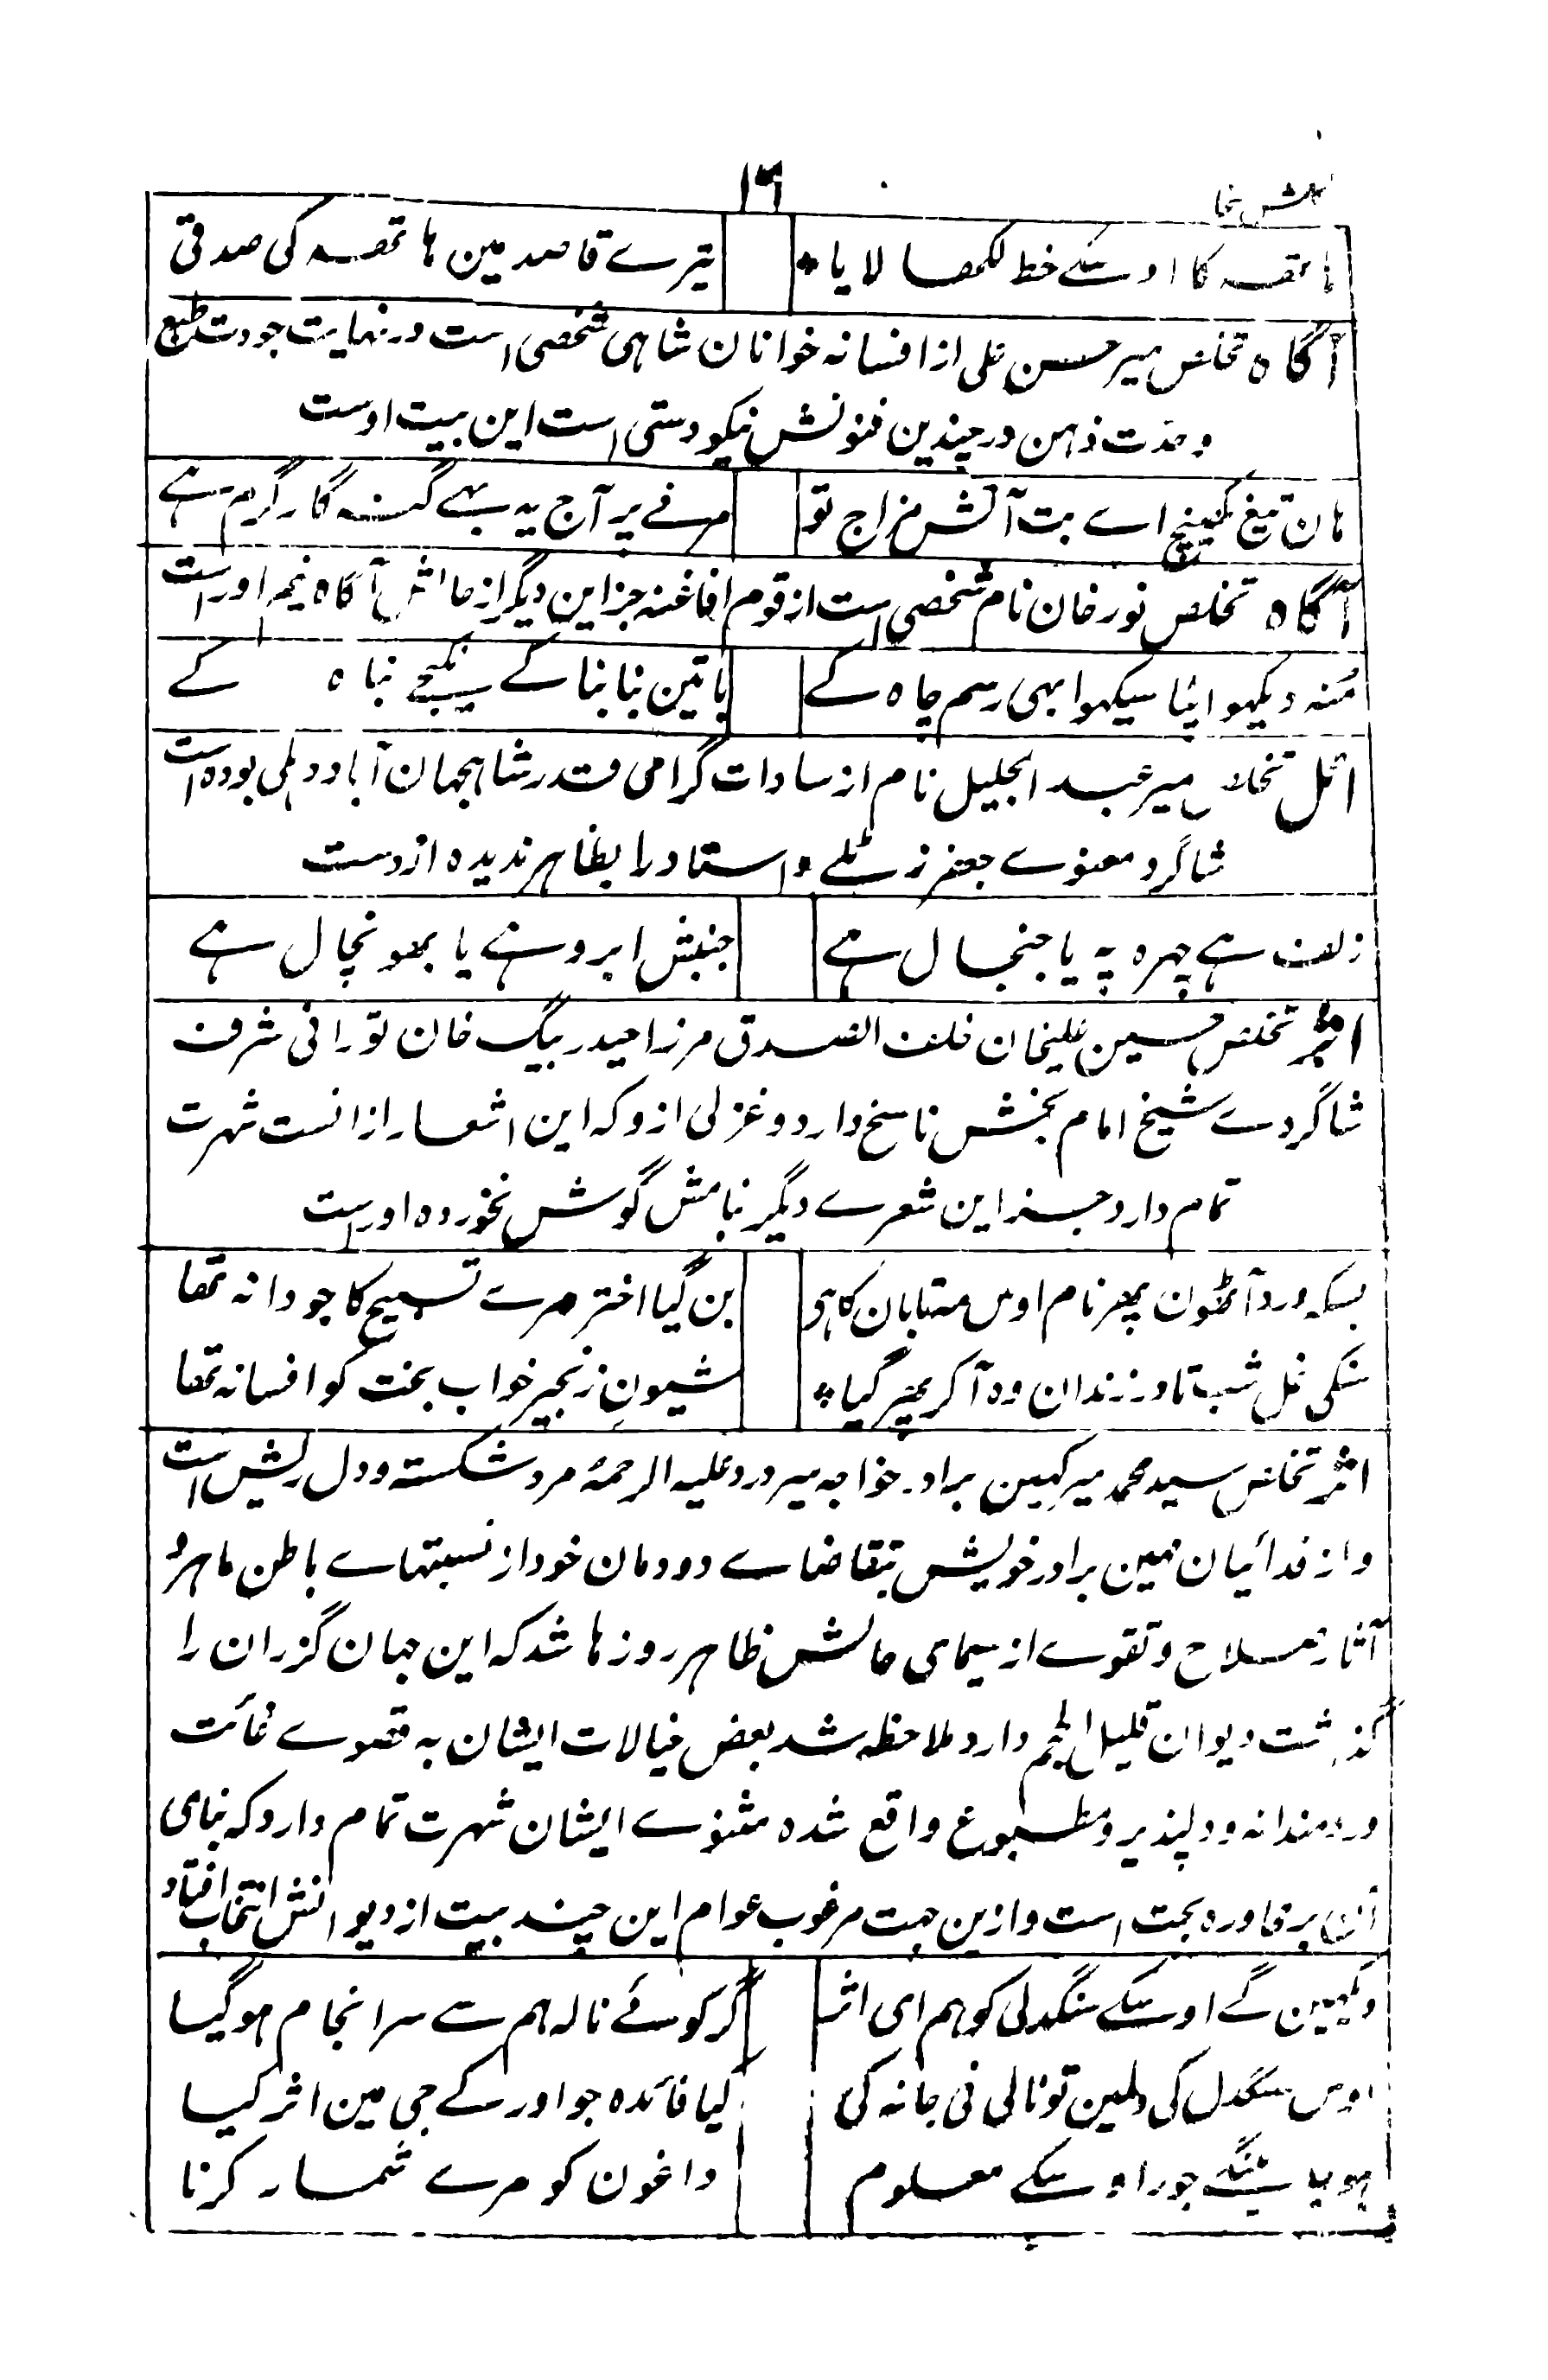 ١٦
ہاتھہ کا اوسکے خط لکھا لایا * تیرے قاصد مین ہاتھہ کی صدقی
آگاہ تخلص میر حسن علی از افسانہ خوانان شاہی شخصی است در نہایت جودت طبع
وحدّت ذہن در چندین فنونش نیکو دستی است این بیت اوست
ہان تیغ کھینچ اے بت آتش مزاج تو مرنے پر آج یہ بہے گنہ گار گرم ہے
آگاہ تخلص نور خان نام شخصی است از قوم افاغنہ جز این دیگر از حالش آگاہ نیم او راست
مُنہ دیکھو اپنا سیکھو ابھی رسم چاہ کے باتین بنا بنا کے سیکھے نباہ کے
اٹل تخلص میر عبد الجلیل نام از سادات گرامی قدر شاہجہان آباد دہلی بودہ است
شاگرد معنوے جعفر زٹلے و استاد را بظاہر ندیدہ ازوست
زلف ہے چہرہ پہ یا جنجال ہے جنبش ابرو ہے یا بھونچال ہے
اثر تخلص حسین علیخان خلف الصدق مرزا حیدر بیگ خان تورانی شرف
شاگردے شیخ امام بخش ناسخ دارد و غزلی ازو کہ این اشعار از انست شہرت
تمام دارد جز این شعرے دیگر بنامش گوش نخوردہ او راست
بسکہ ورد آٹھون پہر نام اوس مہتابان کا ہی بن گیا اختر مرے تسبیح کا جو دانہ تھا
سنکی غل شب تا در زندان وہ آکر پھر گیا * شیونِ زنجیر خواب بخت کو افسانہ تھا
اثر تخلص سید محمد میر کہین برادر خواجہ میر درد علیہ الرحمۃ مرد شکستہ و دل ریش است
و از فدائیان مہین برادر خویش بتقاضاے دودمان خود از نسبتہاے باطن ماہر و
آثار صلاح و تقوے از سیمای حالش ظاہر روزہا شد کہ این جہان گزران را
گذشت دیوان قلیل الحجم دارد ملاحظہ شد بعض خیالات ایشان بہ قصوے غائت
دردمندانہ و دلپذیر و مطبوع واقع شدہ مثنوے ایشان شہرت تمام دارد کہ بنای
آن بر محاورہ بحت است و ازین جہت مرغوب عوام این چند بیت از دیوانش انتخاب افتاد
دیکھین گے اوسکے سنگدلی کو ہم ای اثر گر کوئے نالہ ہم سے سرانجام ہو گیا
اوس سنگدل کی دلمین تو نالی نی جا نہ کی کیا فائدہ جو اور کے جی مین اثر کیا
جور اوسکے معلوم داغون کو مرے شمار کرنا